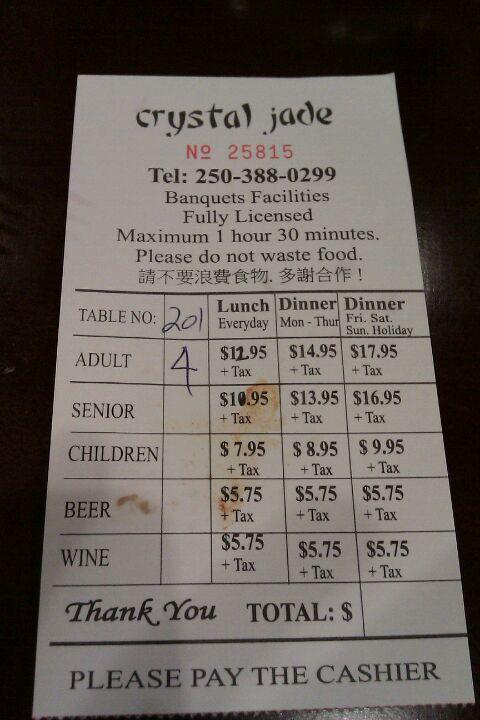 crystal jade
Nº 25815
Tel: 250-388-0299
Banquets Facilities
Fully Licensed
Maximum 1 hour 30 minutes.
Please do not waste food.
請不要浪費食物. 多謝合作！
TABLE NO: 201 Lunch Everyday Dinner Mon - Thur Dinner Fri. Sat. Sun. Holiday
ADULT 4 $12.95 + Tax $14.95 + Tax $17.95 + Tax
SENIOR $10.95 + Tax $13.95 + Tax $16.95 + Tax
CHILDREN $ 7.95 + Tax $ 8.95 + Tax $ 9.95 + Tax
BEER $5.75 + Tax $5.75 + Tax $5.75 + Tax
WINE $5.75 + Tax $5.75 + Tax $5.75 + Tax
Thank You TOTAL: $
PLEASE PAY THE CASHIER